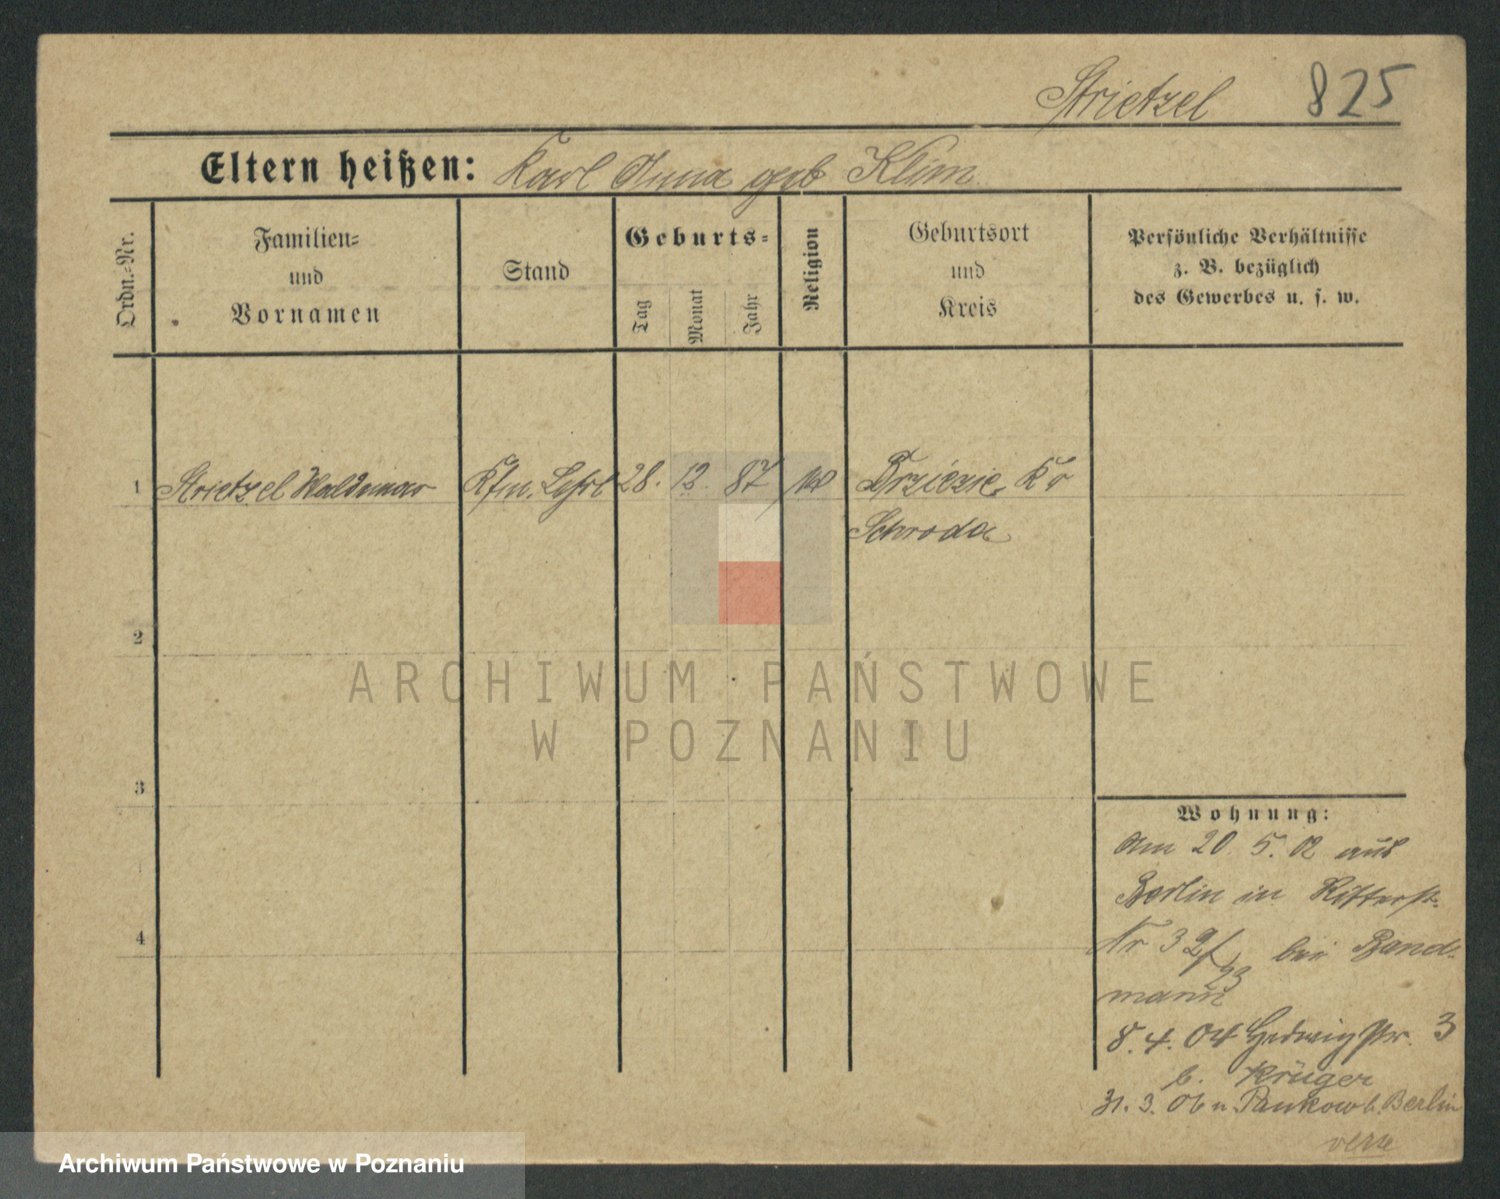 Strietzel 825
Eltern heißen: Karl Anna geb Klim
Ordn.-Nr.
Familien-
und
Vornamen
Stand
Geburts-
Tag
Monat
Jahr
Religion
Geburtsort
und
Kreis
Persönliche Verhältnisse
z. B. bezüglich
des Gewerbes u. s. w.
1 Strietzel Waldemar Kfm. Lehrl 28. 12. 87 Kr
Schroda
2
3
4
ARCHIWUM PAŃSTWOWE
W POZNANIU
Wohnung:
Am 20. 5. 02 aus
Berlin in Ritterstr.
Nr 32/33 bei Band-
mann
8. 4. 04 Hedwigstr. 3
b. Krüger
31. 3. 06 n. Pankow b. Berlin
Archiwum Państwowe w Poznaniu